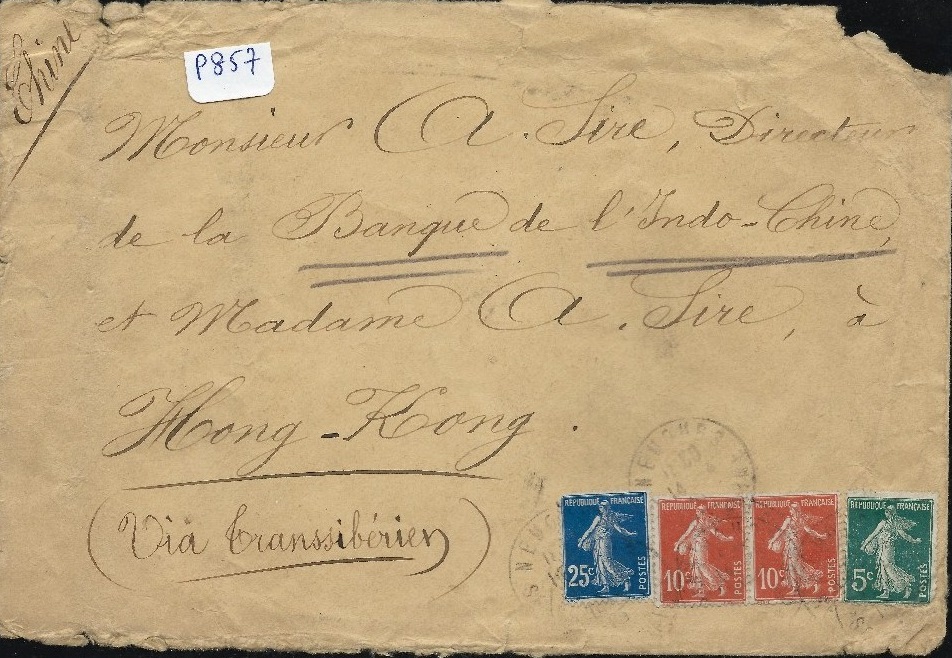 Chine
P857
Monsieur A. Sire, Directeur
de la Banque de l'Indo-Chine,
et Madame A. Sire, à
Hong-Kong.
(Via Transsibérien)
REPUBLIQUE FRANÇAISE
25c
POSTES
REPUBLIQUE FRANÇAISE
10c
POSTES
REPUBLIQUE FRANÇAISE
10c
POSTES
REPUBLIQUE FRANÇAISE
5c
POSTES